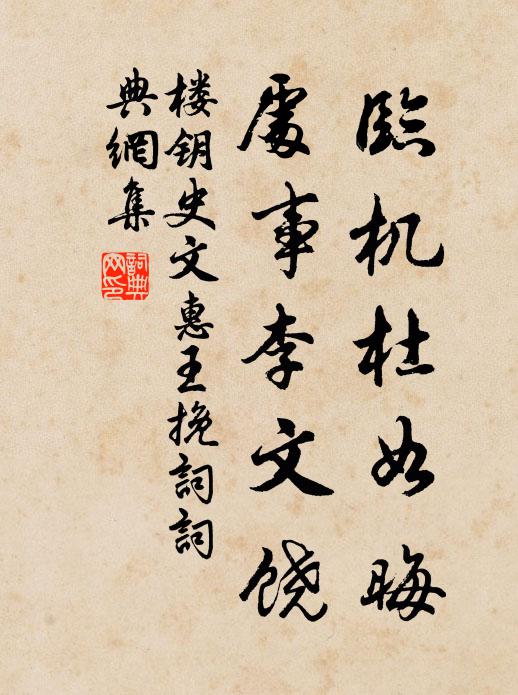 臨机杜如晦
處事李文饶
楼钥史文惠王挽詞詞
典網集
詞典網印